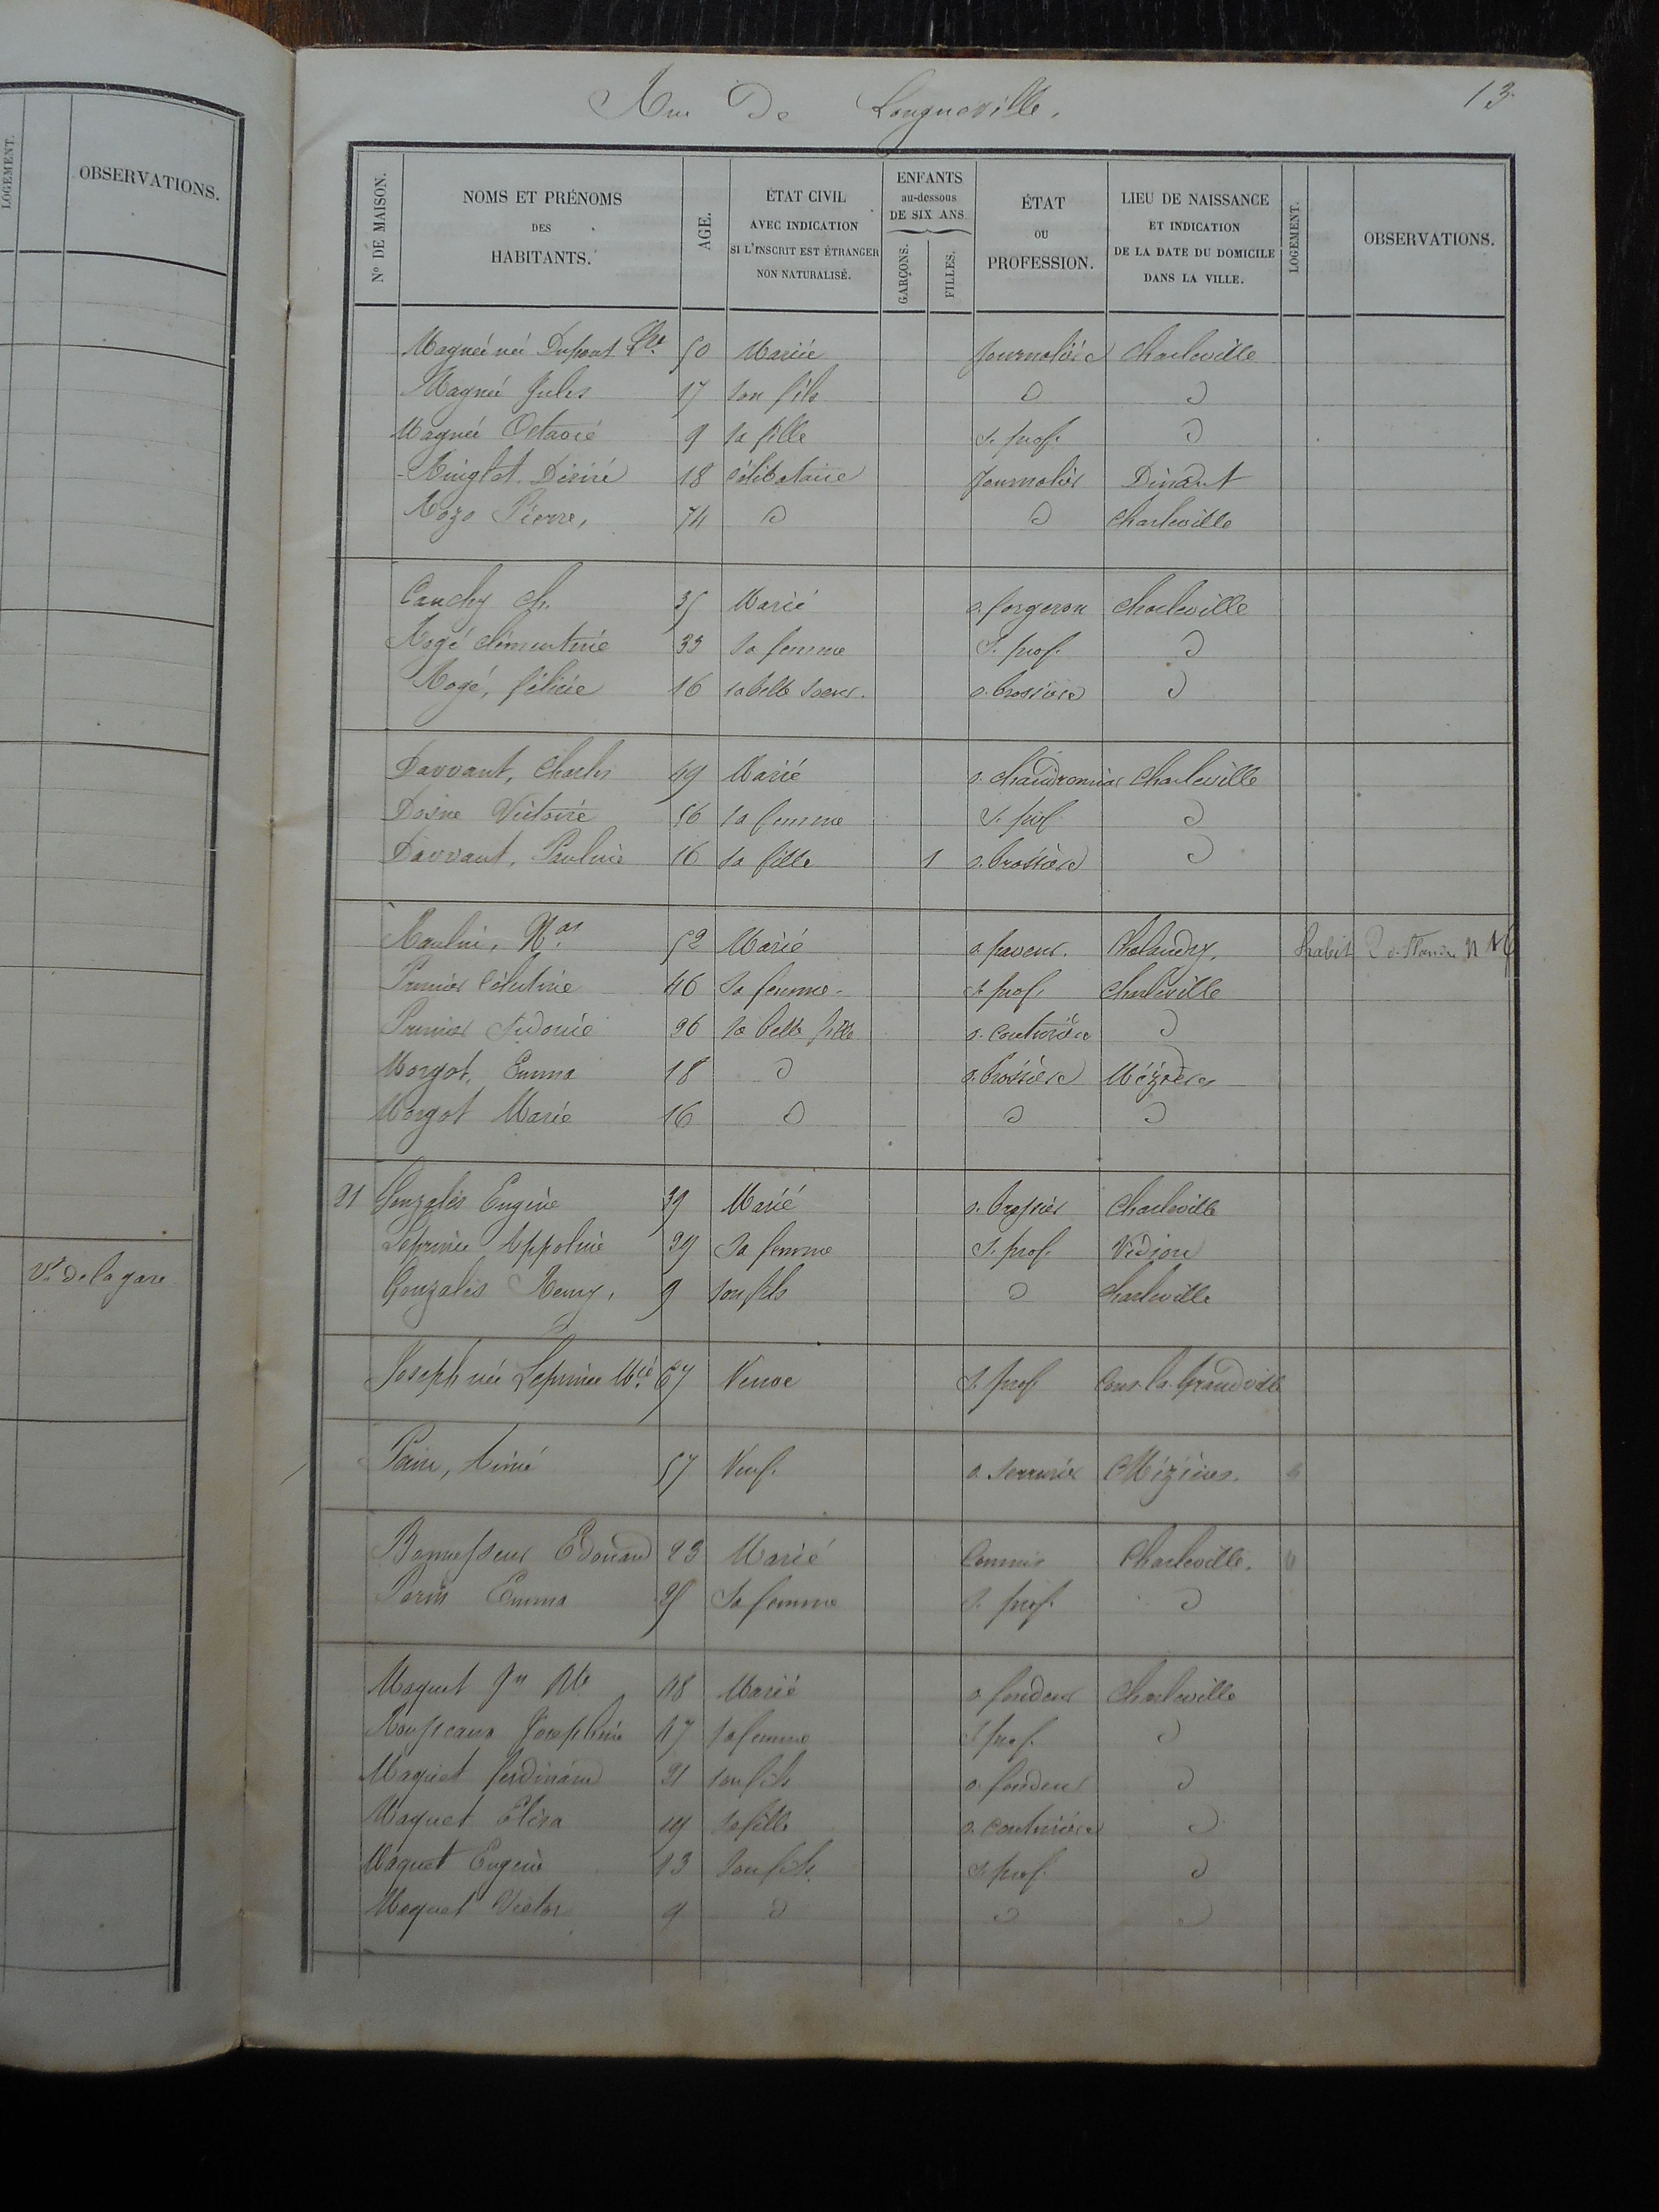 LOGEMENT.
OBSERVATIONS.
Vr. de la gare
Rue De Longueville.
13
Nº DE MAISON.
NOMS ET PRÉNOMS
DES
HABITANTS.
AGE.
ÉTAT CIVIL
AVEC INDICATION
SI L'INSCRIT EST ÉTRANGER
NON NATURALISÉ.
ENFANTS
au-dessous
DE SIX ANS.
GARÇONS.
FILLES.
ÉTAT
OU
PROFESSION.
LIEU DE NAISSANCE
ET INDICATION
DE LA DATE DU DOMICILE
DANS LA VILLE.
LOGEMENT.
OBSERVATIONS.
Magnée née Dupont 50 Mariée Journalière Charleville
Magnée Jules 17 Son fils D D
Magnée Octavie 9 Sa fille S. prof. D
Désiré 18 Célibataire Journalier Dinant
Rozo Pierre, 74 D D Charleville
Cauchy Ch. 35 Marié o. forgeron Charleville
Rogé Clémentine 33 Sa femme S. prof. D
Rogé, félicie 16 sa belle soeur. o. brossière D
Davvant, Charles 49 Marié o. chaudronnier Charleville
Dosne Victoire 56 Sa femme S. prof D
Davvant, Pauline 16 Sa fille 1 o. brossière D
Raulin, Nas 52 Marié o. paveur. habit
Prunier Célestine 46 Sa femme S. prof. Charleville
Prunier Sidonie 26 Sa belle fille o. couturière D
Morgot, Emma 18 D o. brossière Mézières
Morgot Marie 16 D D D
21 Gonzalès Eugène 39 Marié o. brossier Charleville
Leprince Appoline 39 Sa femme S. prof.
Gonzalès Remy, 9 Son fils D Charleville
Joseph née Leprince Mie 67 Veuve S. prof. Cons la Grandville
Aimé 57 Veuf. o. serrurier Mézières.
Edouard 23 Marié Commis Charleville.
Paris Emma 25 Sa femme S. prof. D
Maquet Jn Bte 48 Marié o. fondeur Charleville
Rousseaux Joséphine 47 Sa femme S. prof. D
Maquet ferdinand 21 Son fils o. fondeur D
Maquet Elisa 19 Sa fille o. couturière D
Maquet Eugène 13 Son fils. S. prof. D
Maquet Victor 9 D D D